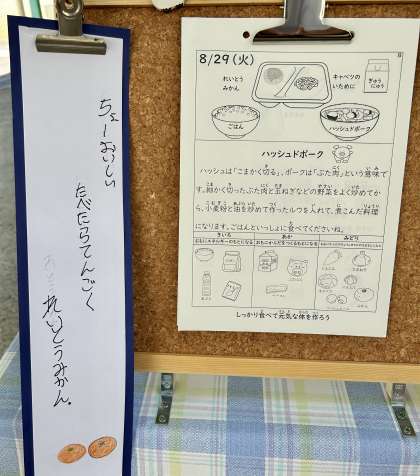 ちょーおいしい
たべたらてんごく
れいとうみかん。
8/29(火)
れいとう
みかん
キャベツの
いために
ぎゅう
にゅう
ごはん
ハッシュドポーク
ハッシュドポーク
ハッシュは「こまかく切る」、ポークは「ぶた肉」という意味で
す。細かく切ったぶた肉と玉ねぎなどの野菜をよく炒めてか
ら、小麦粉と油を炒めて作ったルウを入れて、煮こんだ料理
になります。ごはんといっしょに食べてくださいね。
きいろ
あか
みどり
おもにエネルギーのもとになる
おもにからだをつくるもとになる
しっかり食べて元気な体を作ろう